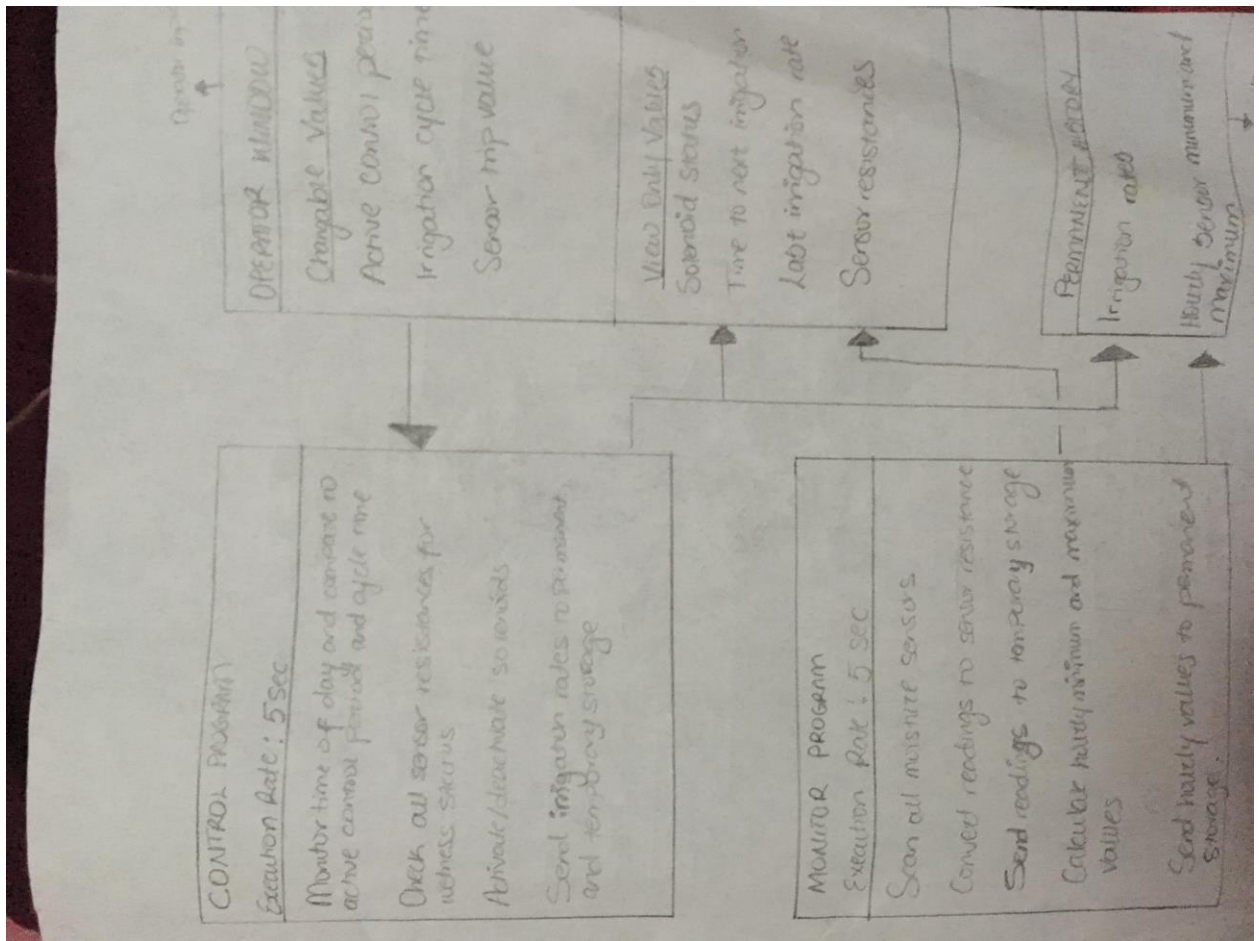 CONTROL PROGRAM
Execution Rate: 5 sec
Monitor time of day and compare to
active control and cycle time
Check all sensor resistances for
wetness status
Activate/deactivate solenoids
Send irrigation rates to permanent
and temporary storage
MONITOR PROGRAM
Execution Rate: 5 sec
Scan all moisture sensors
Convert readings to sensor resistance
Send readings to temperay storage
Calculate hourly minimum and maximum
values
Send hourly values to permanent
storage.
Operator
OPERATOR WINDOW
Changable Values
Active control
Irrigation cycle time
Sensor trip value
View Only Values
Solonoid status
Time to next irrigation
Last irrigation rate
Sensor resistances
PERMANENT HISTORY
Irrigation rates
Hourly sensor minimum and
maximum